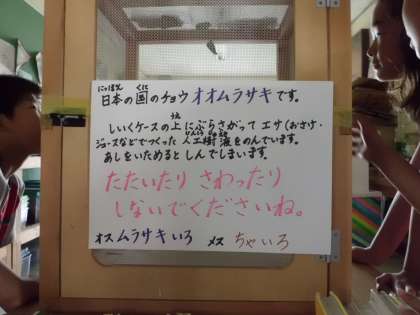 にっぽん くに
日本の国のチョウ オオムラサキです。
うえ
しいくケースの上にぶらさがって エサ(おさけ・
じんこうじゅえき
ジュースなどでつくった 人工樹液をのんでいます。
あしをいためると しんでしまいます。
たたいたり さわったり
しないでくださいね。
オス ムラサキいろ メス ちゃいろ